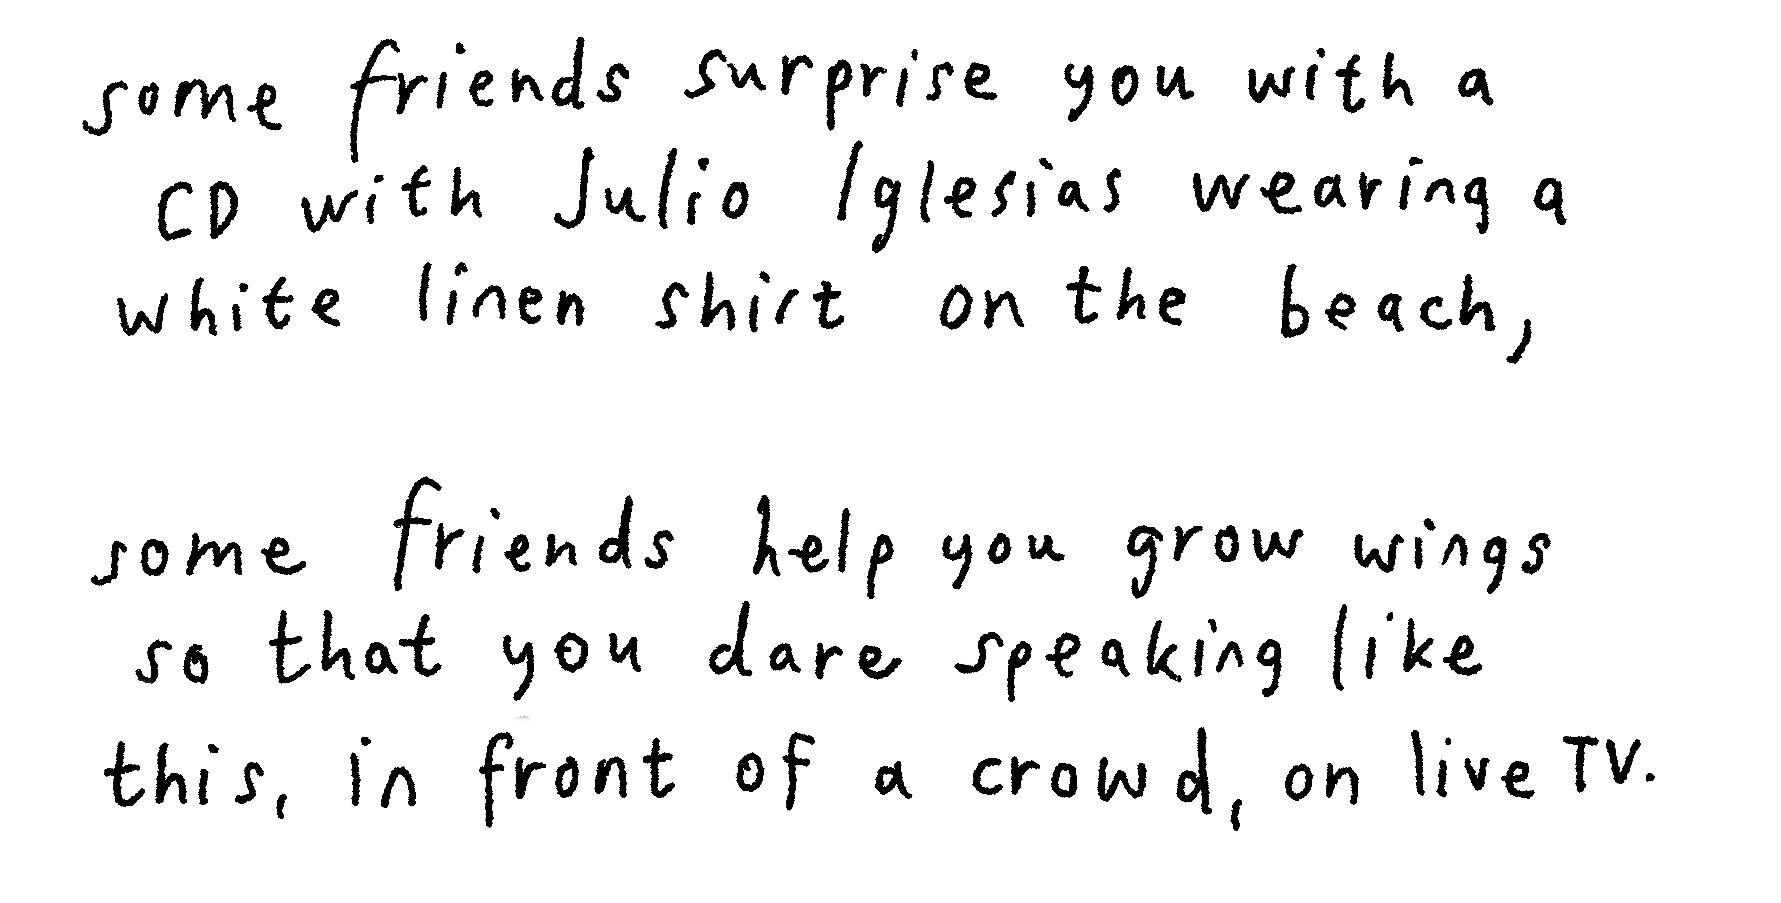 some friends surprise you with a
CD with Julio Iglesias wearing a
white linen shirt on the beach,
some friends help you grow wings
so that you dare speaking like
this, in front of a crowd, on live TV.